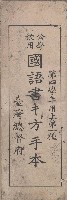 公學校用
國語書キ方手本
第四學年用上第一種
臺灣總督府